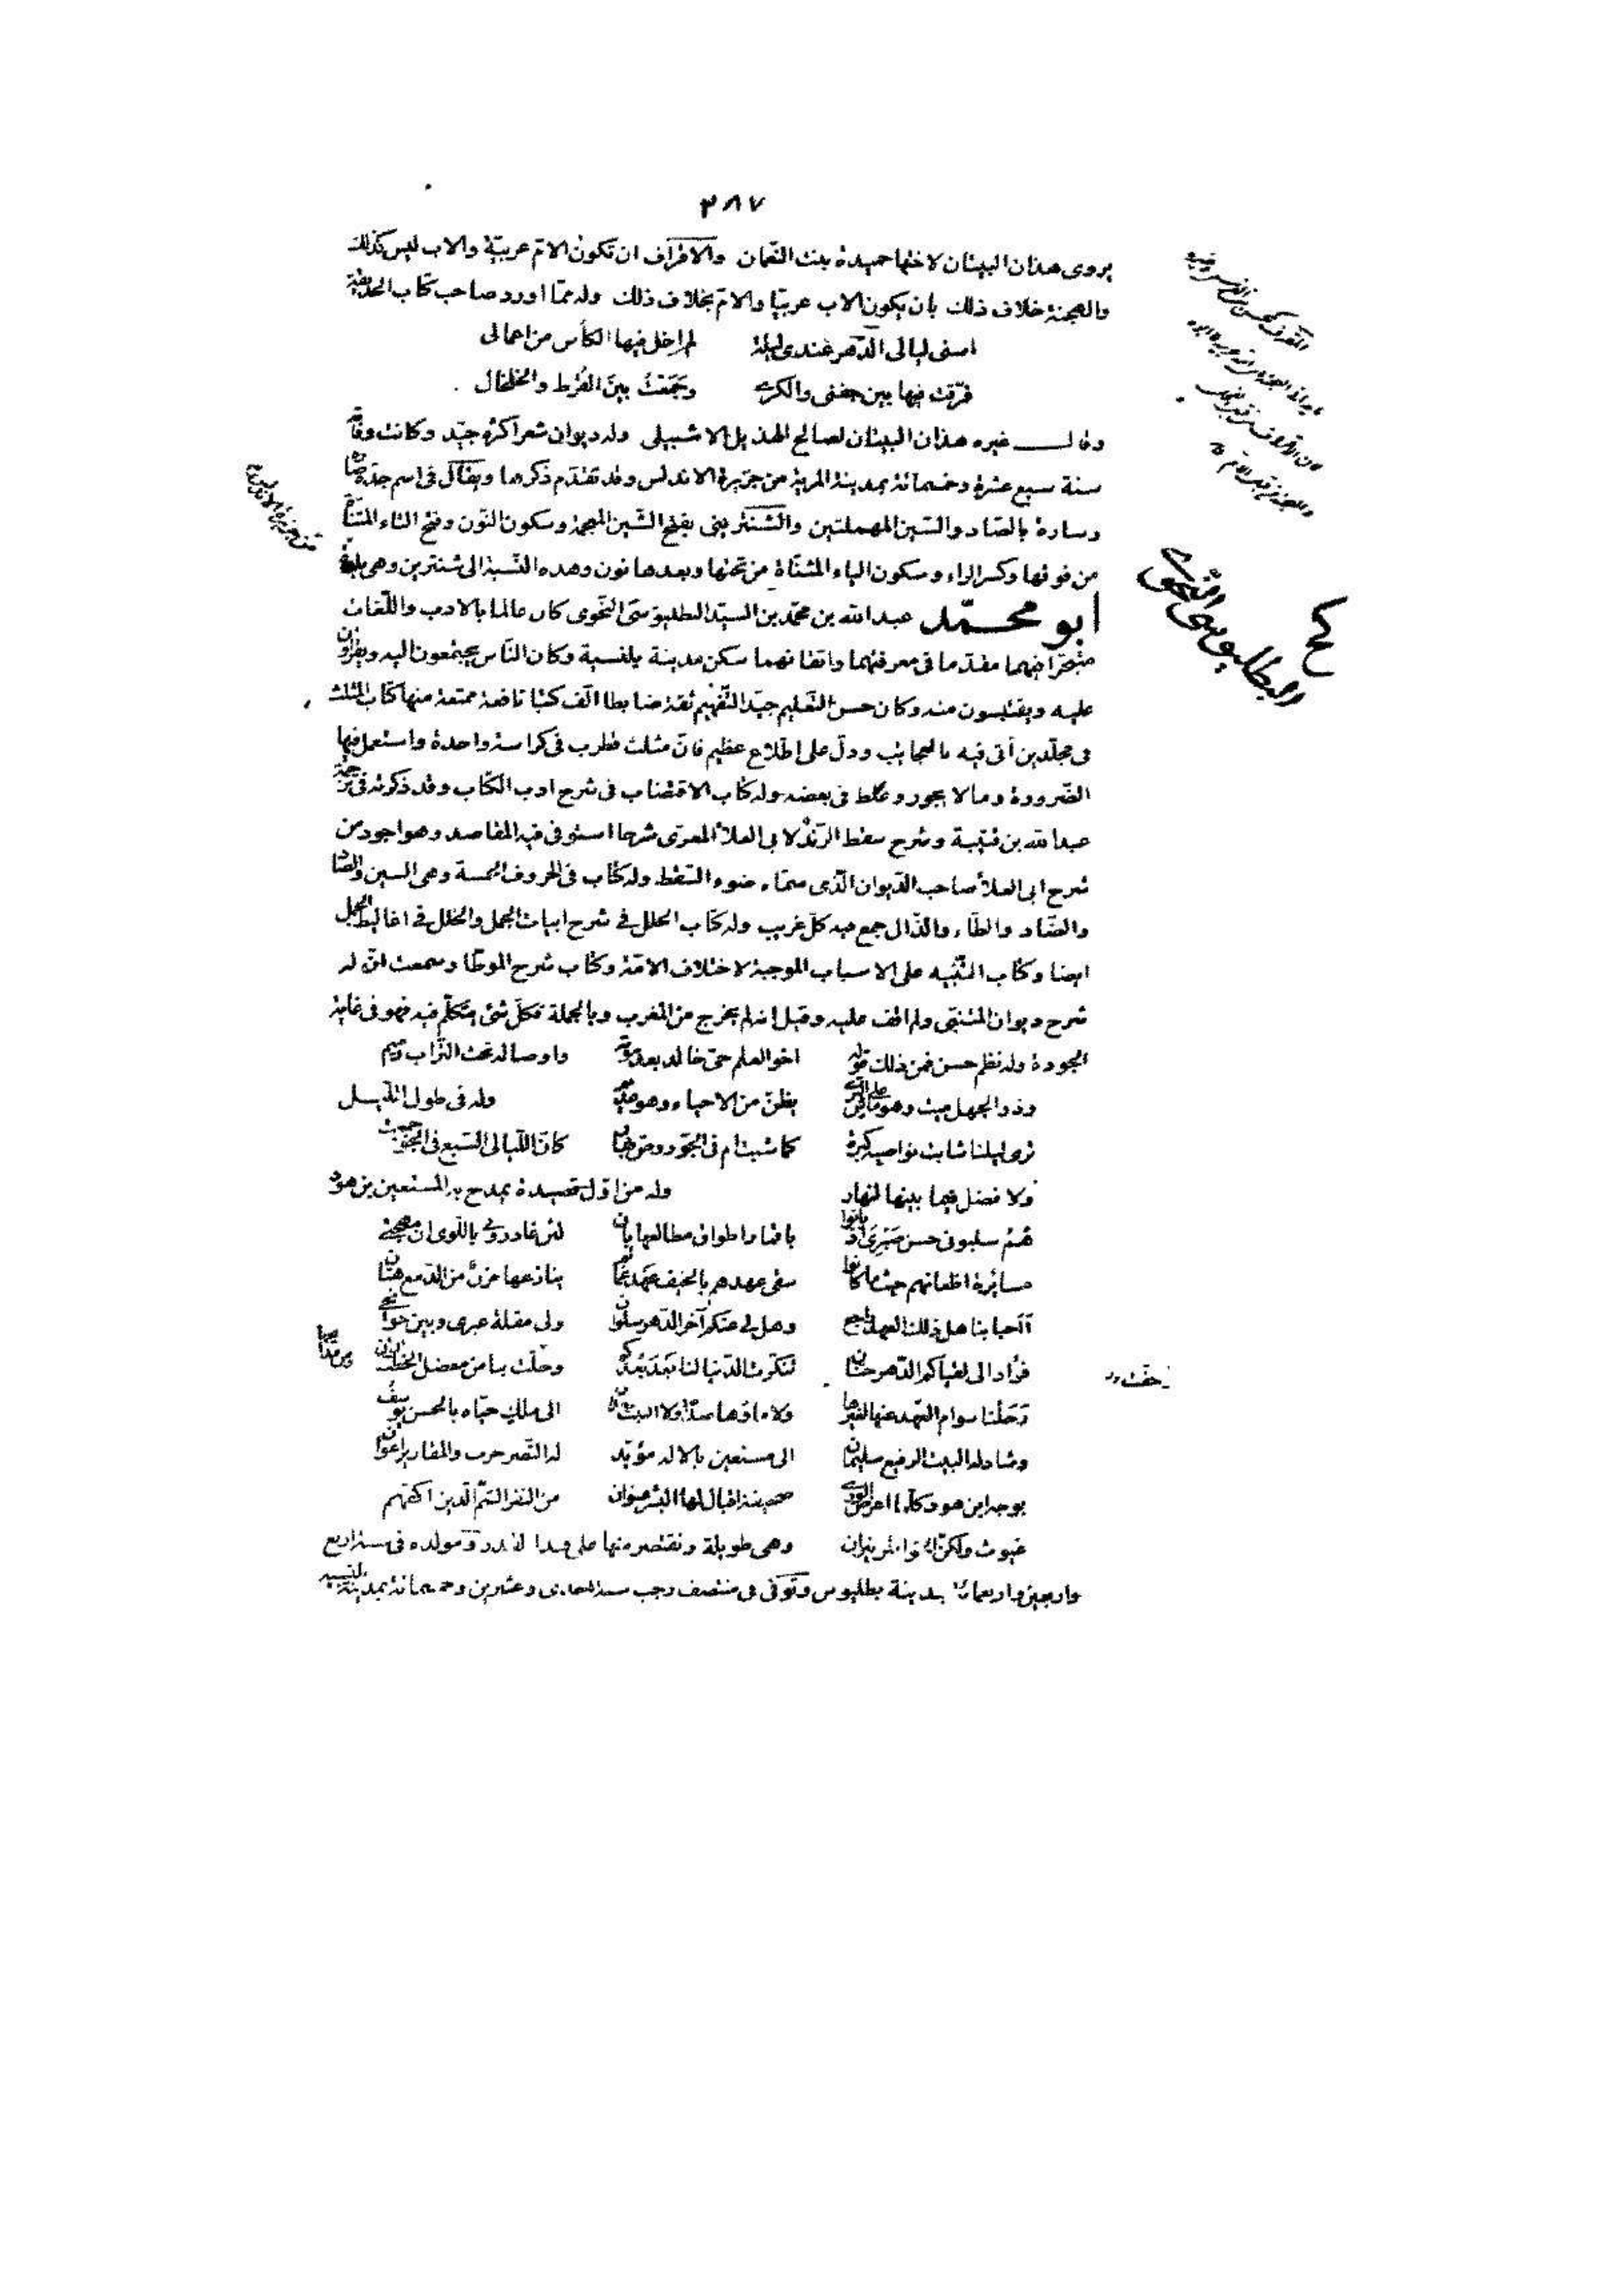 ٢٨٧
يروى هذان البيتان لاختها حميدة بنت النّعمان والاقراف ان تكون الامّ عربيّة والاب ليس كذلك
والهجنة خلاف ذلك بان يكون الاب عربيّا والامّ بخلاف ذلك وله ممّا اورد صاحب كتاب الحديقة
اسنى ليالى الدّهر عندى ليلة لم اخل فيها الكأس من اعمالى
فرّقت فيها بين جفنى والكرى وجَمَعْتُ بينَ القُرط والخلخال
وقال غيره هذان البيتان لصالح الهذيل الاشبيلى وله ديوان شعر اكثره جيّد وكانت وفاته
سنة سبع عشرة وخمسمائة بمدينة المرية من جزيرة الاندلس وقد تقدّم ذكرها ويقال فى اسم جدّه صارة
وسارة بالصّاد والسّين المهملتين والشّنترينى بفتح الشّين المعجمة وسكون النّون وفتح التاء المثنّاة
من فوقها وكسر الراء وسكون الياء المثنّاة من تحتها وبعدها نون وهذه النّسبة الى شنترين وهى بليدة
ابو محمّد عبد الله بن محمّد بن السيّد البطليوسىّ النّحوى كان عالما بالادب واللّغات
متبحّرا فيهما مقدّما فى معرفتهما واتقانهما سكن مدينة بلنسية وكان النّاس يجتمعون اليه ويقرؤن
عليه ويقتبسون منه وكان حسن التّعليم جيّد التّفهيم ثقة ضابطا الّف كتبا نافعة ممتعة منها كتاب المثلث
فى مجلّدين أتى فيه بالعجايب ودلّ على اطّلاع عظيم فانّ مثلث قطرب فى كراسة واحدة واستعمل فيها
الضّرورة وما لا يجوز وغلط فى بعضه وله كتاب الاقتضاب فى شرح ادب الكتّاب وقد ذكرته فى ترجمة
عبد الله بن قتيبة وشرح سقط الزّند لابى العلاء المعرّى شرحا استوفى فيه المقاصد وهو اجود من
شرح ابى العلاء صاحب الدّيوان الّذى سمّاه ضوء السّقط وله كتاب فى الحروف الخمسة وهى السين والصّاد
والضّاد والطّاء والذّال جمع فيه كلّ غريب وله كتاب الحلل فى شرح ابيات الجمل والخلل فى اغاليط الجمل
ايضا وكتاب التّنبيه على الاسباب الموجبة لاختلاف الامّة وكتاب شرح الموطّا وسمعت انّ له
شرح ديوان المتنبّى ولم اقف عليه وقيل انه لم يخرج من المغرب وبالجملة فكلّ شئ يتكلّم فيه فهو فى غاية
الجودة وله نظم حسن فمن ذلك قوله اخو العلم حىّ خالد بعد موته واوصاله تحت التّراب رميم
وذو الجهل ميت وهو ماش على الثّرى يظنّ من الاحياء وهو عديم وله فى طول اللّيل
ترى ليلنا شابت نواصيه كبرة كما شبت ام فى الجوّ روض بهار كانّ اللّيالى السّبع فى الجوّ جمعت
ولا فصل فيما بينها لنهار وله من اوّل قصيدة يمدح بها المستعين بن هود
هُمُ سلبونى حسن صَبْرِىَ اذ بانوا باقمار اطواق مطالعها بان لئن غادرونى باللّوى ان مهجتى
مسائرة اظعانهم حيث ما كانوا سقى عهدهم بالخيف عهد غمائم ينازعها مزن من الدّمع هتّان
أأحبابنا هل ذلك العهد راجع وهل لى عنكم آخر الدّهر سلوان ولى مقلة عبرى وبين جوانحى
فؤاد الى لقياكم الدّهر حنّان تنكّرت الدّنيا لنا بعد بُعدكم وحلّت بنا من معضل الخطب الوان
رحلنا سوام الحمد عنها لغيرها ولا ماؤها صدّا ولا النبت سعدان الى ملك حباه بالحسن يوسف
وشاد له البيت الرفيع سليمان الى مستعين بالاله مؤيّد له النّصر حزب والمقادير اعوان
بوجه ابن هود كلّما اعرض الورى صحيفة اقبال لها البشر عنوان من النفر الشّمّ الّذين اكفّهم
غيوث ولكنّ وهى طويلة ونقتصر منها على هذا القدر ومولده فى سنة اربع
واربعين واربعمائة بمدينة بطليوس وتوفّى فى منتصف رجب سنة احدى وعشرين وخمسمائة بمدينة بلنسية
البطليوسى النّحوى